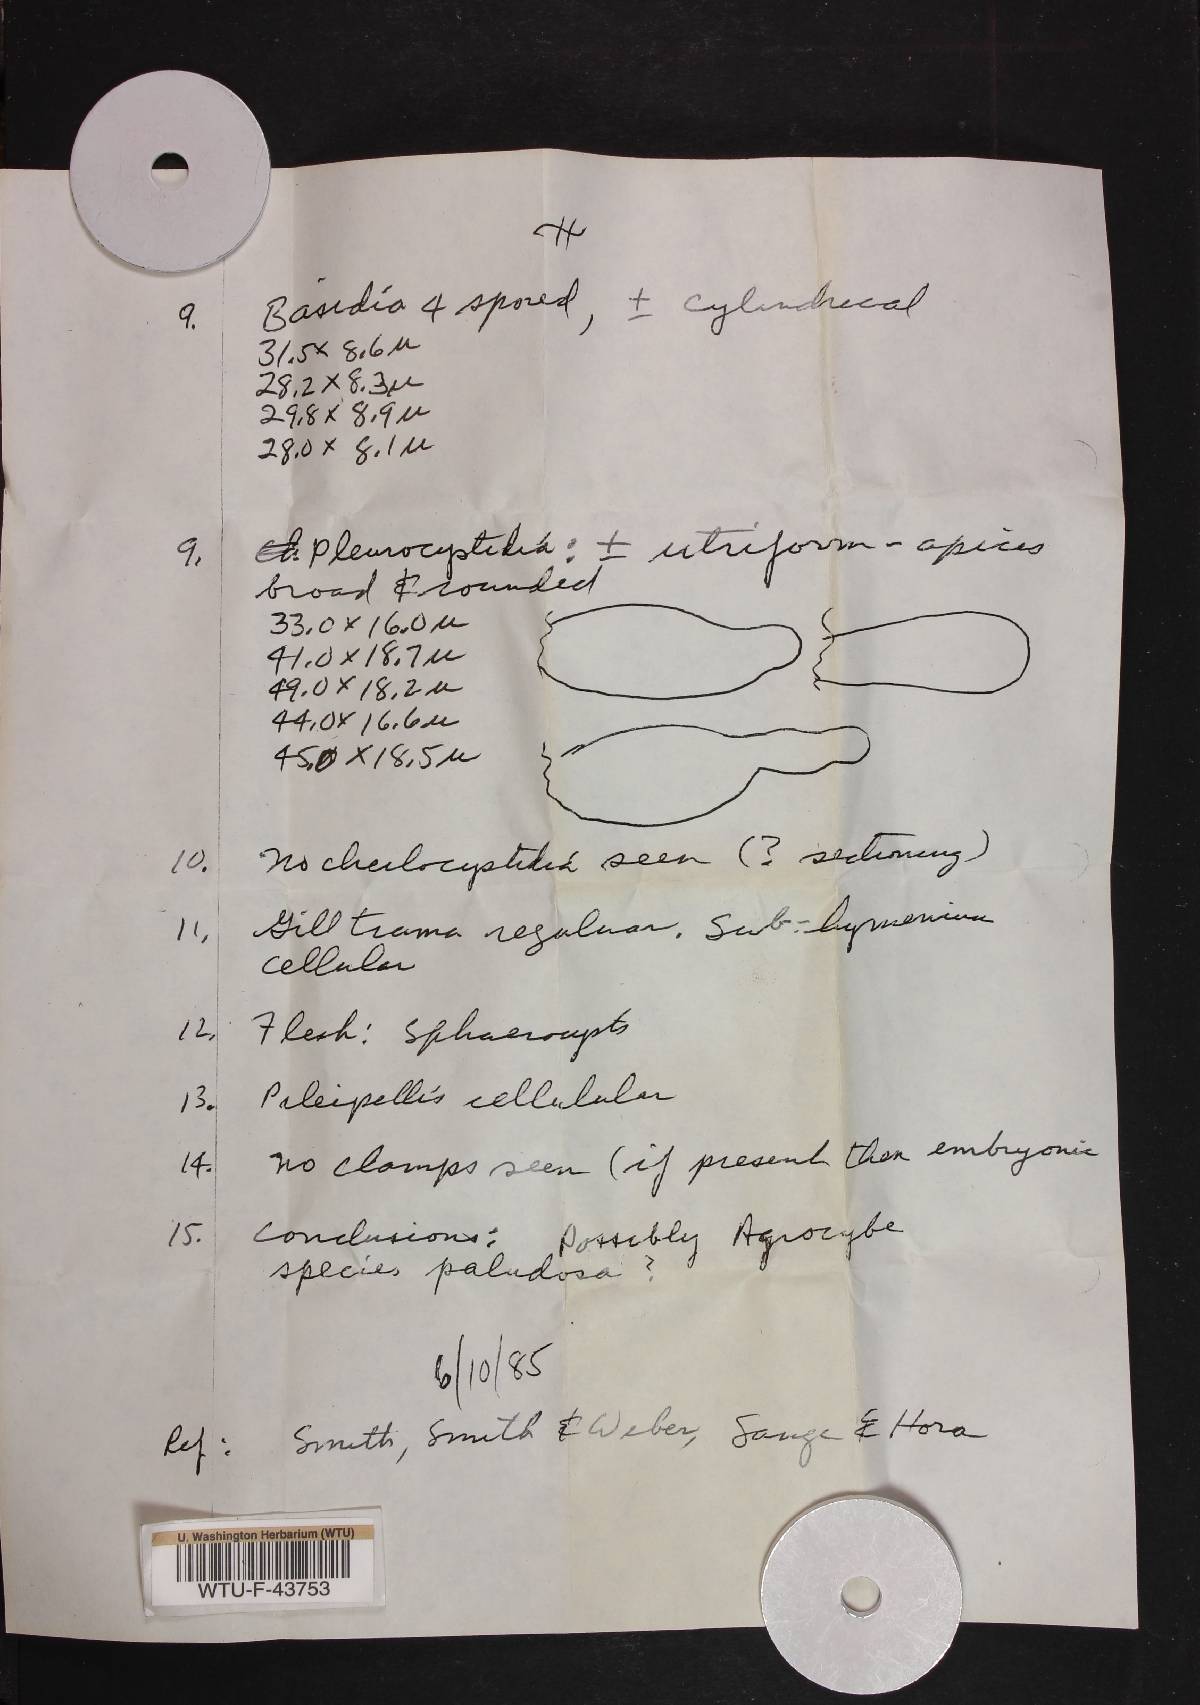 #
9. Basidia 4 spored, ± cylindrical
31.5 x 8.6 µ
28.2 x 8.3 µ
29.8 x 8.9 µ
28.0 x 8.1 µ
9. Pleurocystidia: ± utriform - apices
broad & rounded
33.0 x 16.0 µ
41.0 x 18.7 µ
49.0 x 18.2 µ
44.0 x 16.6 µ
45.0 x 18.5 µ
10. No cheilocystidia seen (? sectioning)
11. Gill trama reguluar. Sub-hymenium
cellular
12. Flesh: Sphaerocysts
13. Pileipellis cellulular
14. No clamps seen (if present then embryonic
15. Conclusions: Possibly Agrocybe
species paludosa ?
6/10/85
Ref: Smith, Smith & Weber, Lange & Hora
U. Washington Herbarium (WTU)
WTU-F-43753